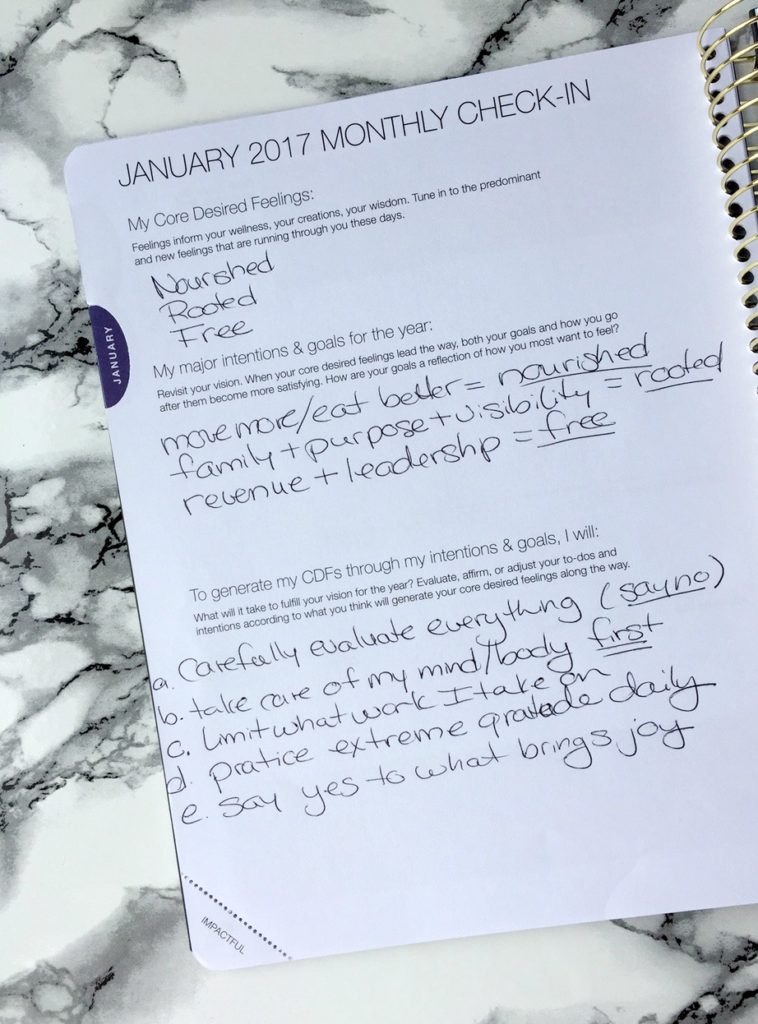 JANUARY 2017 MONTHLY CHECK-IN
My Core Desired Feelings:
Feelings inform your wellness, your creations, your wisdom. Tune in to the predominant
and new feelings that are running through you these days.
Nourished
Rooted
Free
My major intentions & goals for the year:
Revisit your vision. When your core desired feelings lead the way, both your goals and how you go
after them become more satisfying. How are your goals a reflection of how you most want to feel?
move more/eat better = nourished
family + purpose + visibility = rooted
revenue + leadership = free
To generate my CDFs through my intentions & goals, I will:
What will it take to fulfill your vision for the year? Evaluate, affirm, or adjust your to-dos and
intentions according to what you think will generate your core desired feelings along the way.
a. Carefully evaluate everything (say no)
b. take care of my mind/body first
c. limit what work I take on
d. pratice extreme gratitude daily
e. say yes to what brings joy
JANUARY
IMPACTFUL